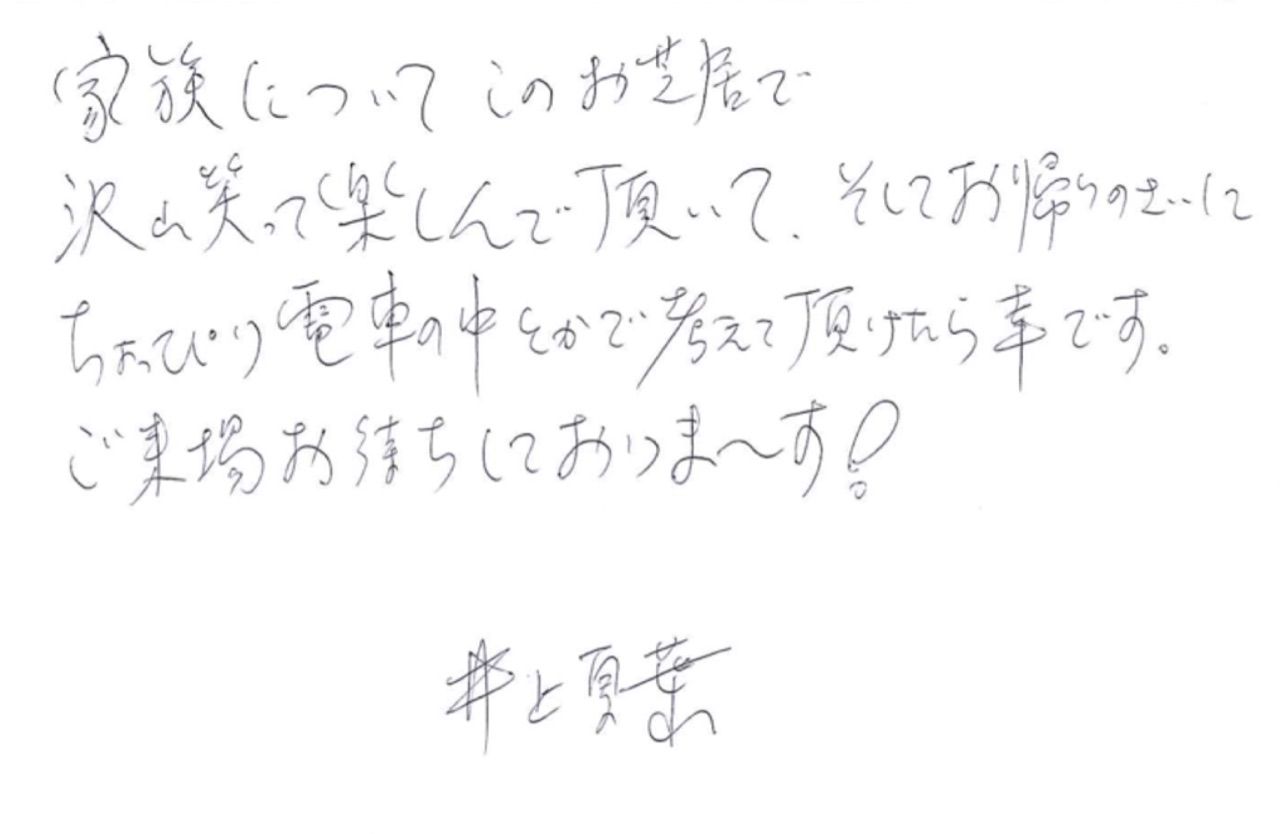 家族について このお芝居で
沢山笑って楽しんで頂いて、そしてお帰りのさいに
ちょっぴり電車の中とかで考えて頂けたら幸です。
ご来場お待ちしておりま〜す!
井上夏葉